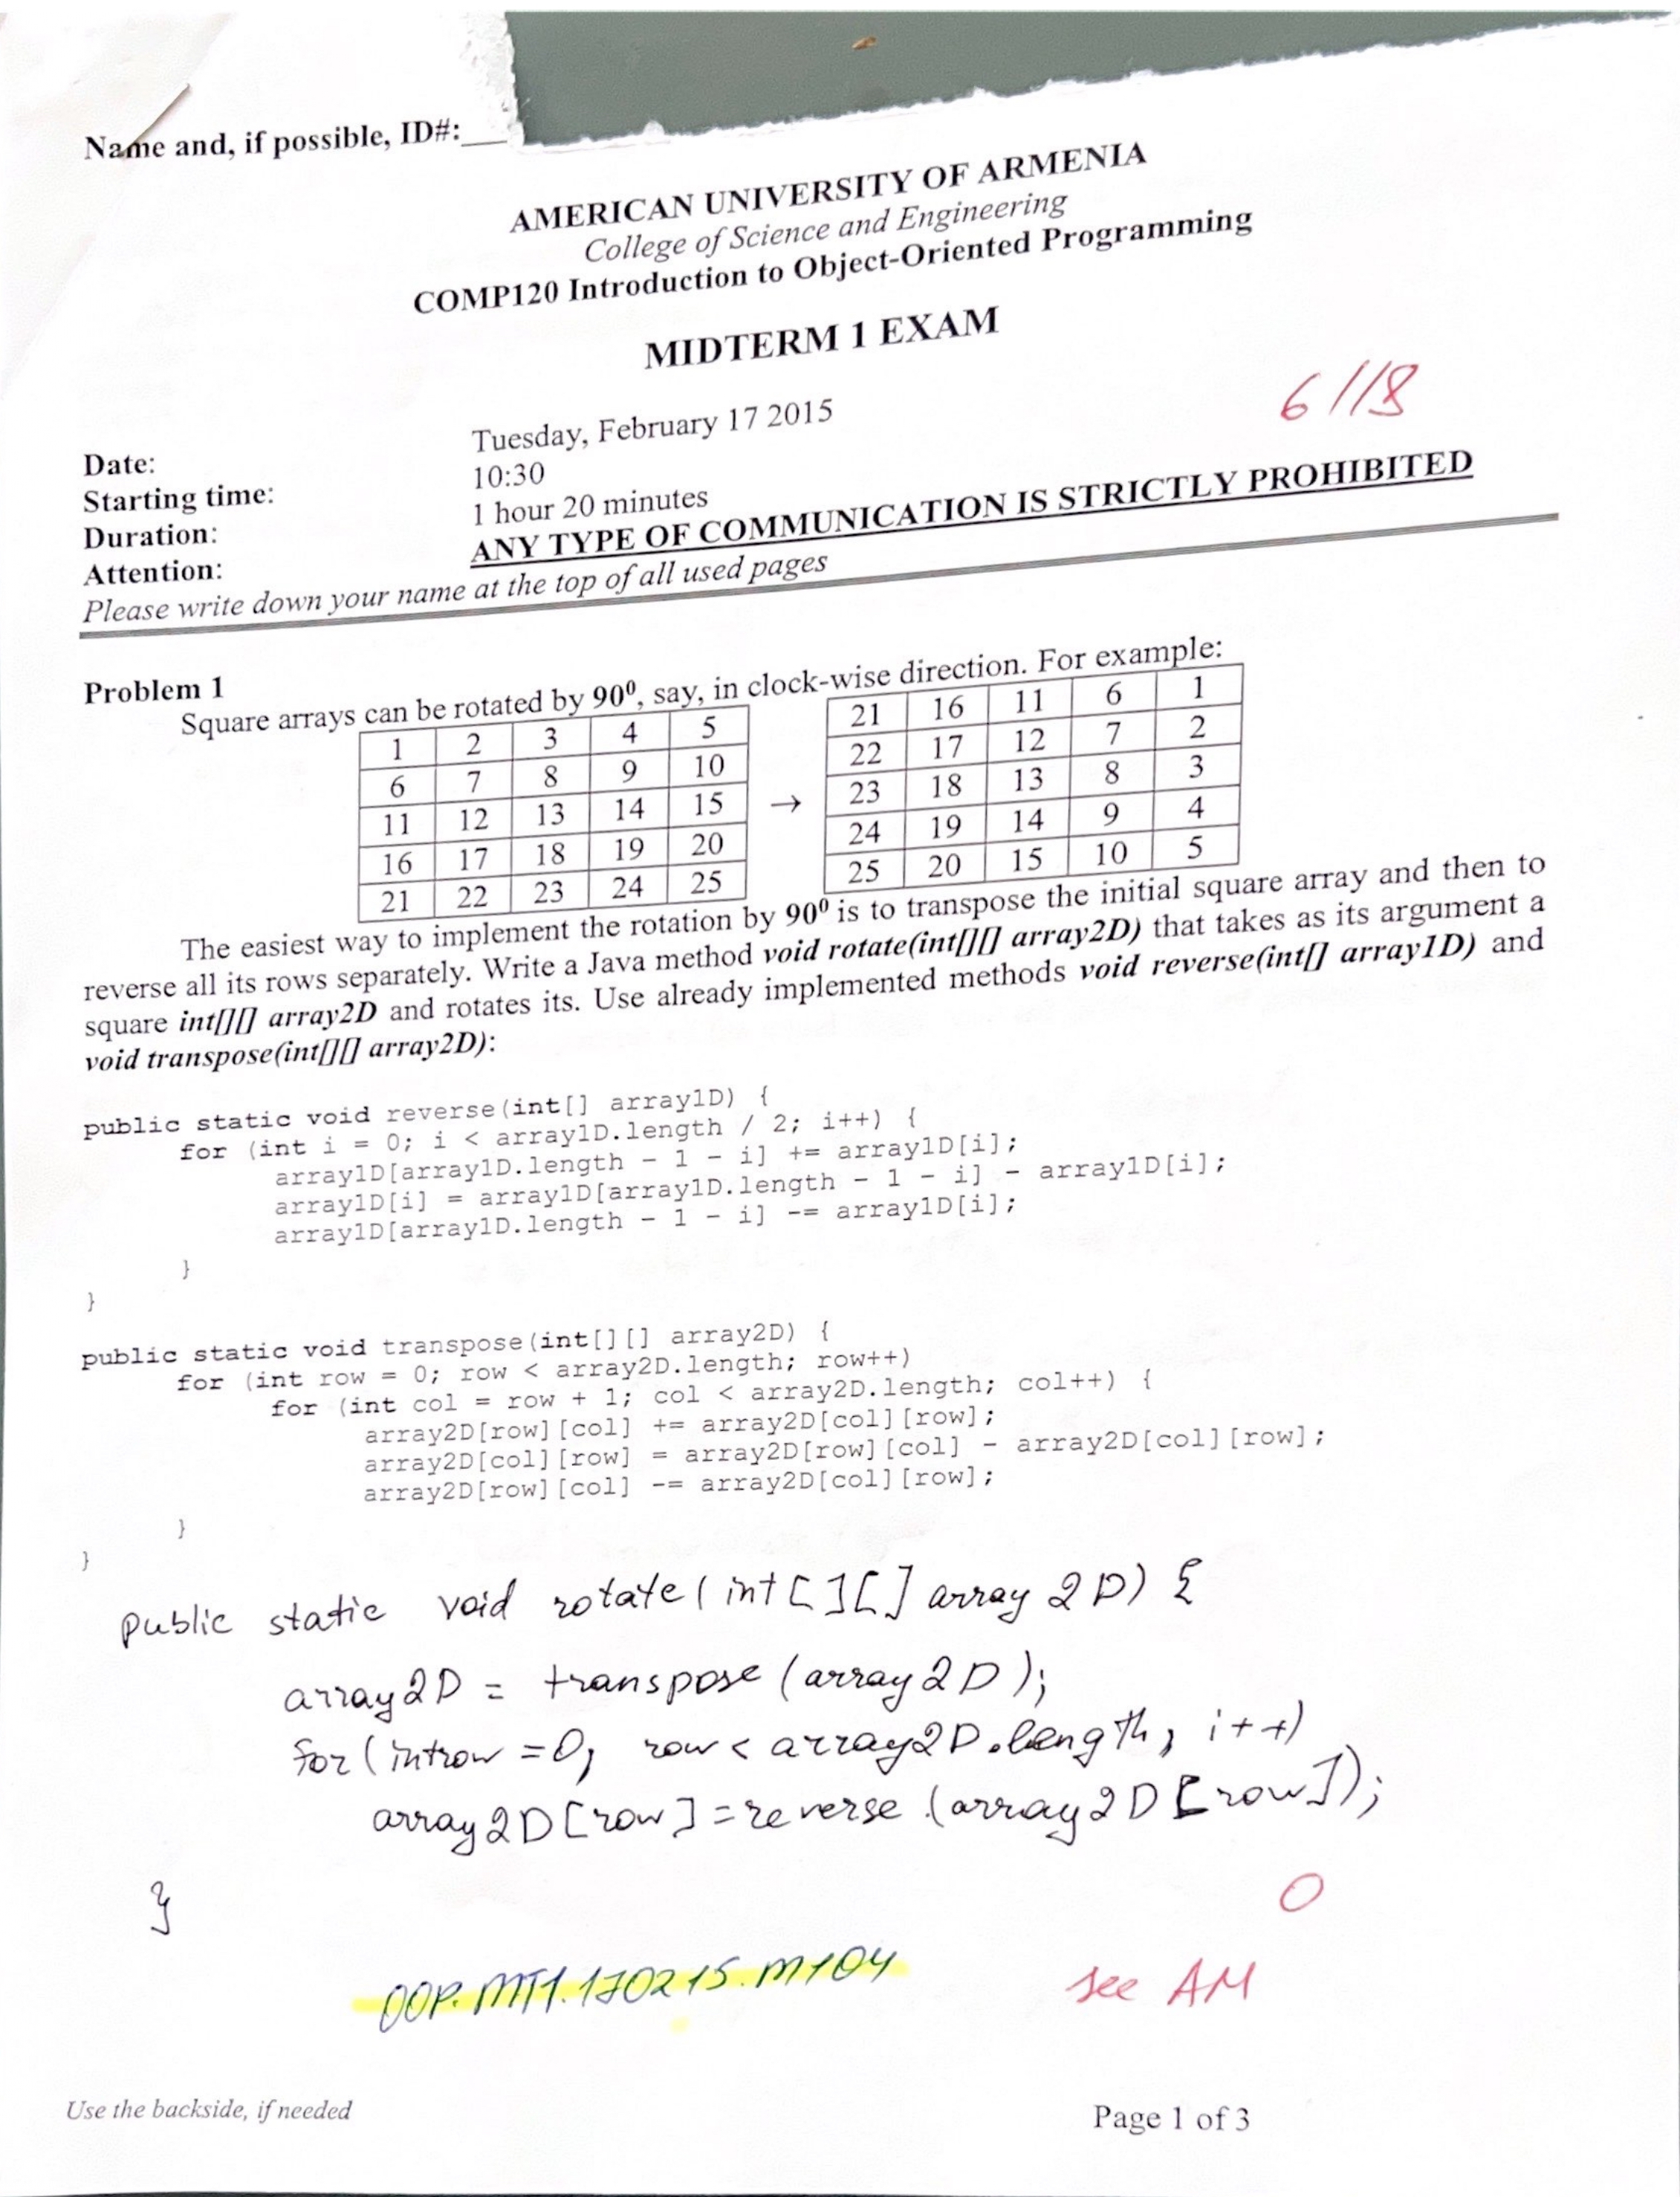 Name and, if possible, ID#:
AMERICAN UNIVERSITY OF ARMENIA
College of Science and Engineering
COMP120 Introduction to Object-Oriented Programming
MIDTERM 1 EXAM
6 //8
Date: Tuesday, February 17 2015
Starting time: 10:30
Duration: 1 hour 20 minutes
Attention: ANY TYPE OF COMMUNICATION IS STRICTLY PROHIBITED
Please write down your name at the top of all used pages
Problem 1
Square arrays can be rotated by 90⁰, say, in clock-wise direction. For example:
1 2 3 4 5 21 16 11 6 1
6 7 8 9 10 22 17 12 7 2
11 12 13 14 15 → 23 18 13 8 3
16 17 18 19 20 24 19 14 9 4
21 22 23 24 25 25 20 15 10 5
The easiest way to implement the rotation by 90⁰ is to transpose the initial square array and then to
reverse all its rows separately. Write a Java method void rotate(int[][] array2D) that takes as its argument a
square int[][] array2D and rotates its. Use already implemented methods void reverse(int[] array1D) and
void transpose(int[][] array2D):
public static void reverse(int[] array1D) {
for (int i = 0; i < array1D.length / 2; i++) {
array1D[array1D.length - 1 - i] += array1D[i];
array1D[i] = array1D[array1D.length - 1 - i] - array1D[i];
array1D[array1D.length - 1 - i] -= array1D[i];
}
}
public static void transpose(int[][] array2D) {
for (int row = 0; row < array2D.length; row++)
for (int col = row + 1; col < array2D.length; col++) {
array2D[row][col] += array2D[col][row];
array2D[col][row] = array2D[row][col] - array2D[col][row];
array2D[row][col] -= array2D[col][row];
}
}
public static void rotate(int[][] array2D) {
array2D = transpose(array2D);
for(int row = 0; row < array2D.length; i++)
array2D[row] = reverse(array2D[row]);
}
0
OOP.MT1.170215.M104
see AM
Use the backside, if needed
Page 1 of 3